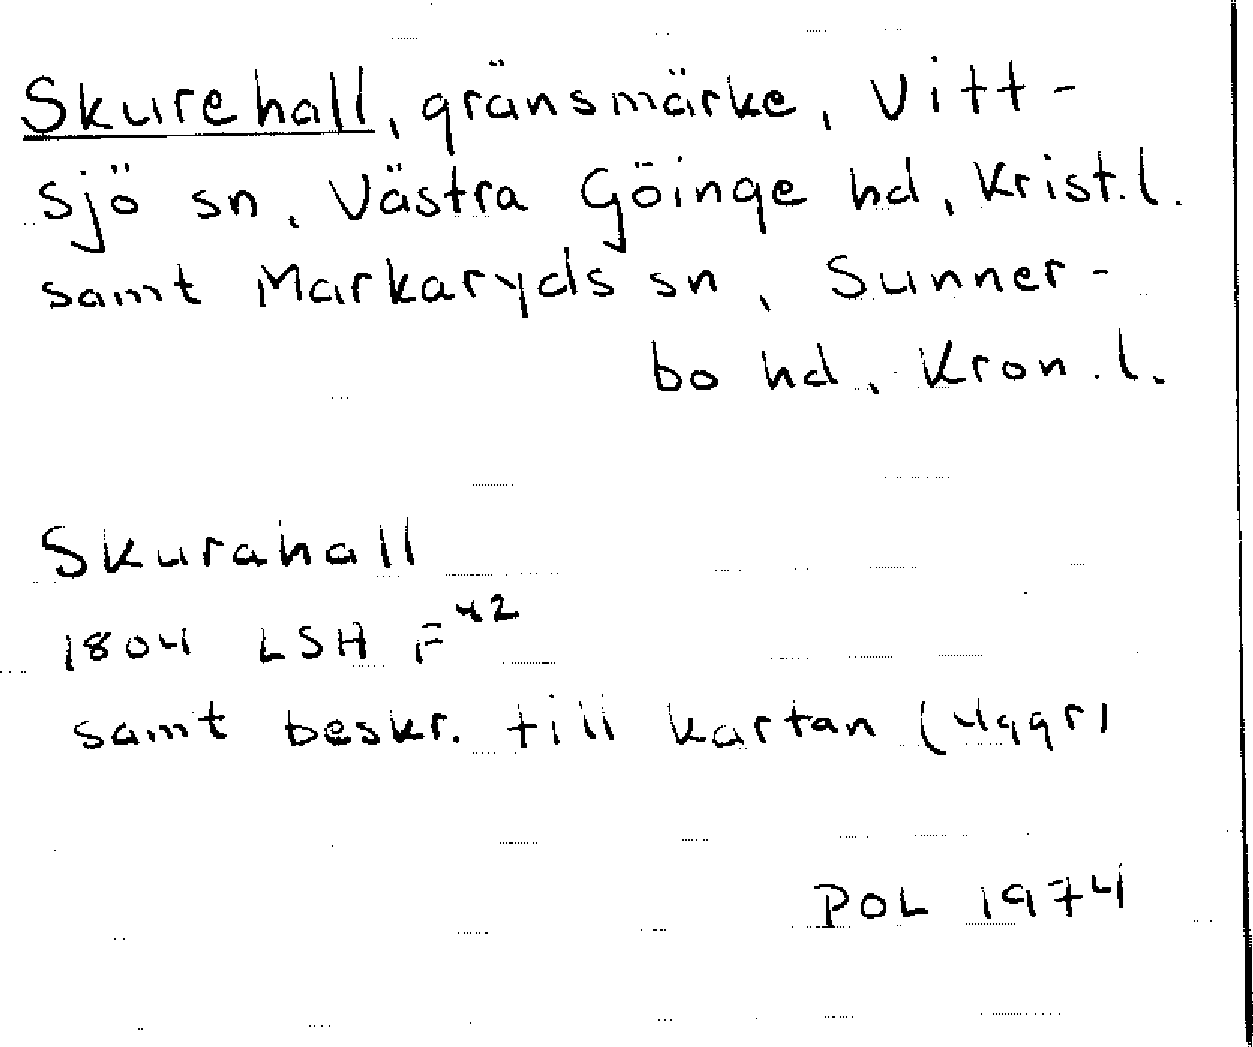 Skurehall, gränsmärke, Vitt-
sjö sn, Västra Göinge hd, Krist.l.
samt Markaryds sn, Sunner-
bo hd, Kron.l.
Skurahall
1804 LSH F⁴²
samt beskr. till kartan (499r)
POL 1974